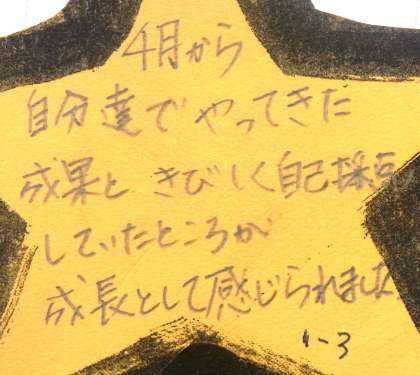 4月から
自分達でやってきた
成果ときびしく自己採点
していたところが
成長として感じられました
1-3